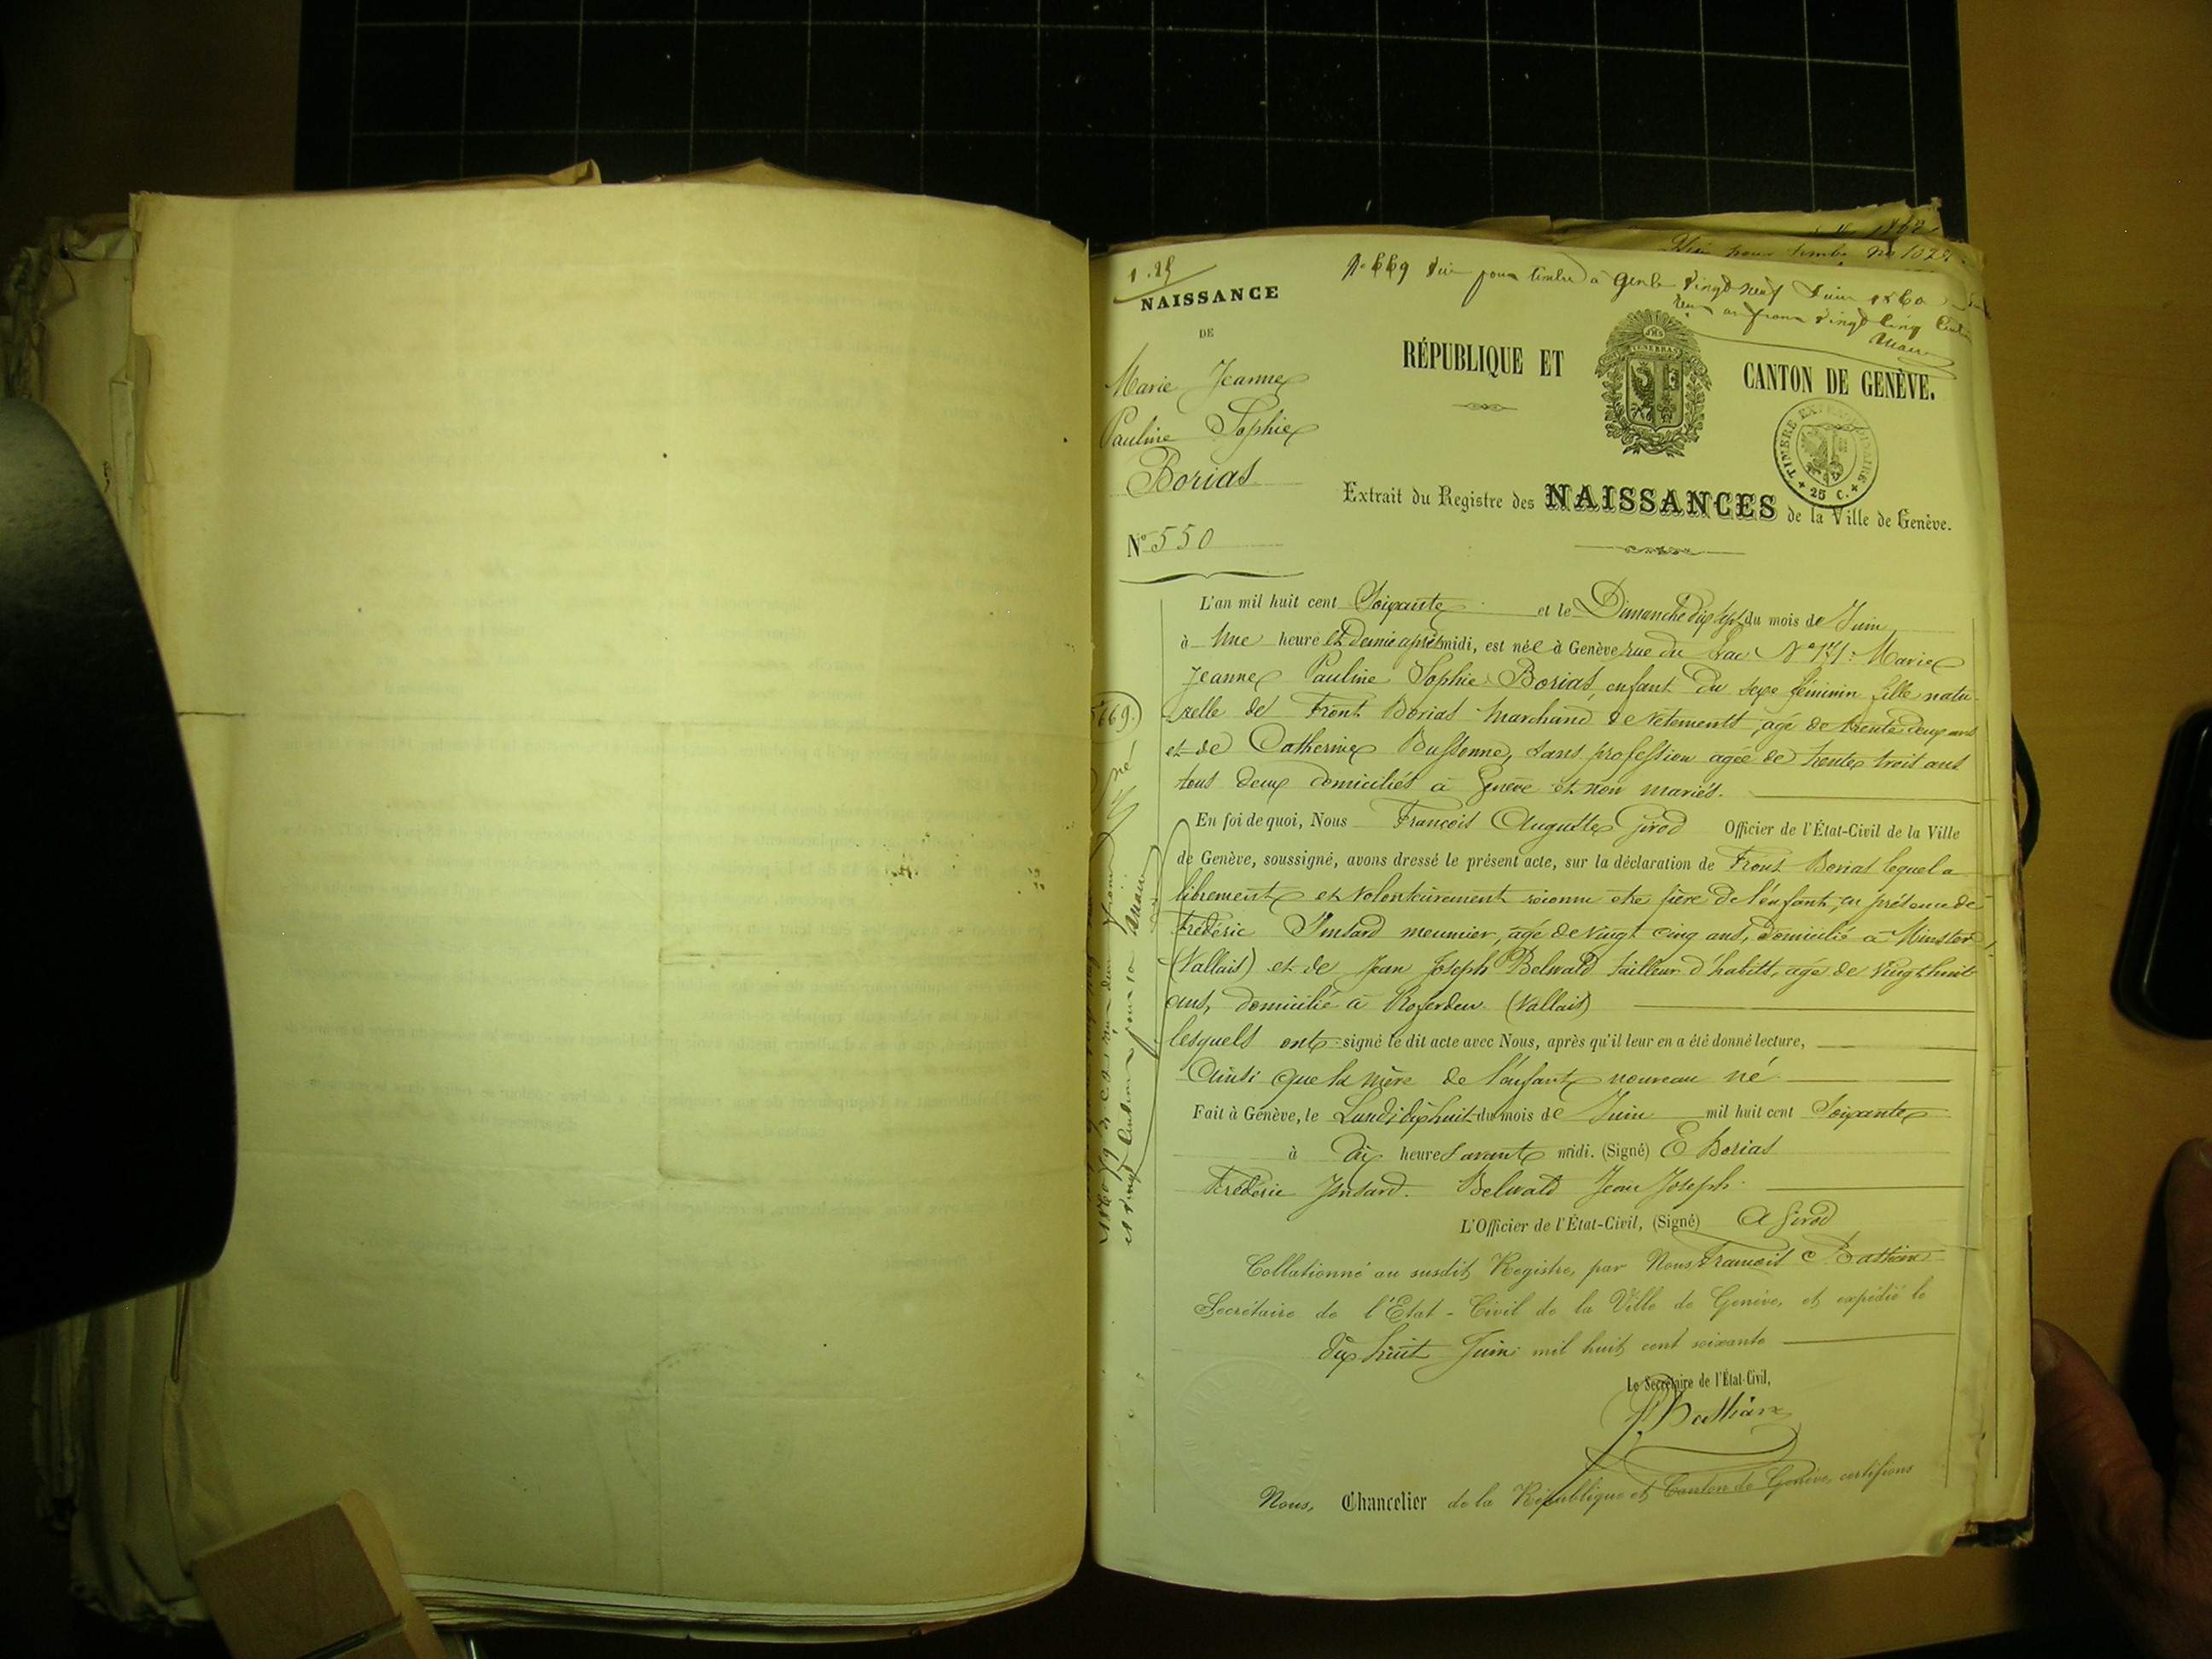 1.25
NAISSANCE
DE
Marie Jeanne
Pauline Sophie
Borias
N° 550
N° 669 Vu pour timbre à vingt neuf Juin 1860
un franc vingt cinq
RÉPUBLIQUE ET CANTON DE GENÈVE.
TIMBRE EXTRAORDINAIRE
25 C.
Extrait du Registre des NAISSANCES de la Ville de Genève.
L'an mil huit cent Soixante et le Dimanche dix sept du mois de Juin
à Une heure et demie après midi, est née à Genève rue du Lac N° Marie
Jeanne Pauline Sophie Borias, enfant du sexe féminin fille natu-
relle de Front Borias marchand de vêtements, agé de trente deux ans
et de Catherine Bussonne, sans profession agée de trente trois ans
tous deux domiciliés à Genève et non mariés.
En foi de quoi, Nous François Auguste Girod Officier de l'État-Civil de la Ville
de Genève, soussigné, avons dressé le présent acte, sur la déclaration de Front Borias lequel a
librement et volontairement reconnu etre père de l'enfant, en présence de
Frédéric Insard meunier, agé de vingt cinq ans, domicilié à Minster
(Vallais) et de Jean Joseph Belwald tailleur d'habits, agé de vingt huit
ans, domicilié à (Vallais)
lesquels ont signé le dit acte avec Nous, après qu'il leur en a été donné lecture,
Ainsi que la mère de l'enfant nouveau né
Fait à Genève, le Lundi dix huit du mois de Juin mil huit cent Soixante
à dix heures avant midi. (Signé) E Borias
Frédéric Insard. Belwald Jean Joseph.
L'Officier de l'État-Civil, (Signé) A Girod
Collationné au susdit Registre, par Nous François Bathian
Secrétaire de l'Etat-Civil de la Ville de Genève, et expédié le
dix huit Juin mil huit cent soixante
Le Secrétaire de l'État-Civil,
Nous, Chancelier de la République et Canton de Genève, certifions